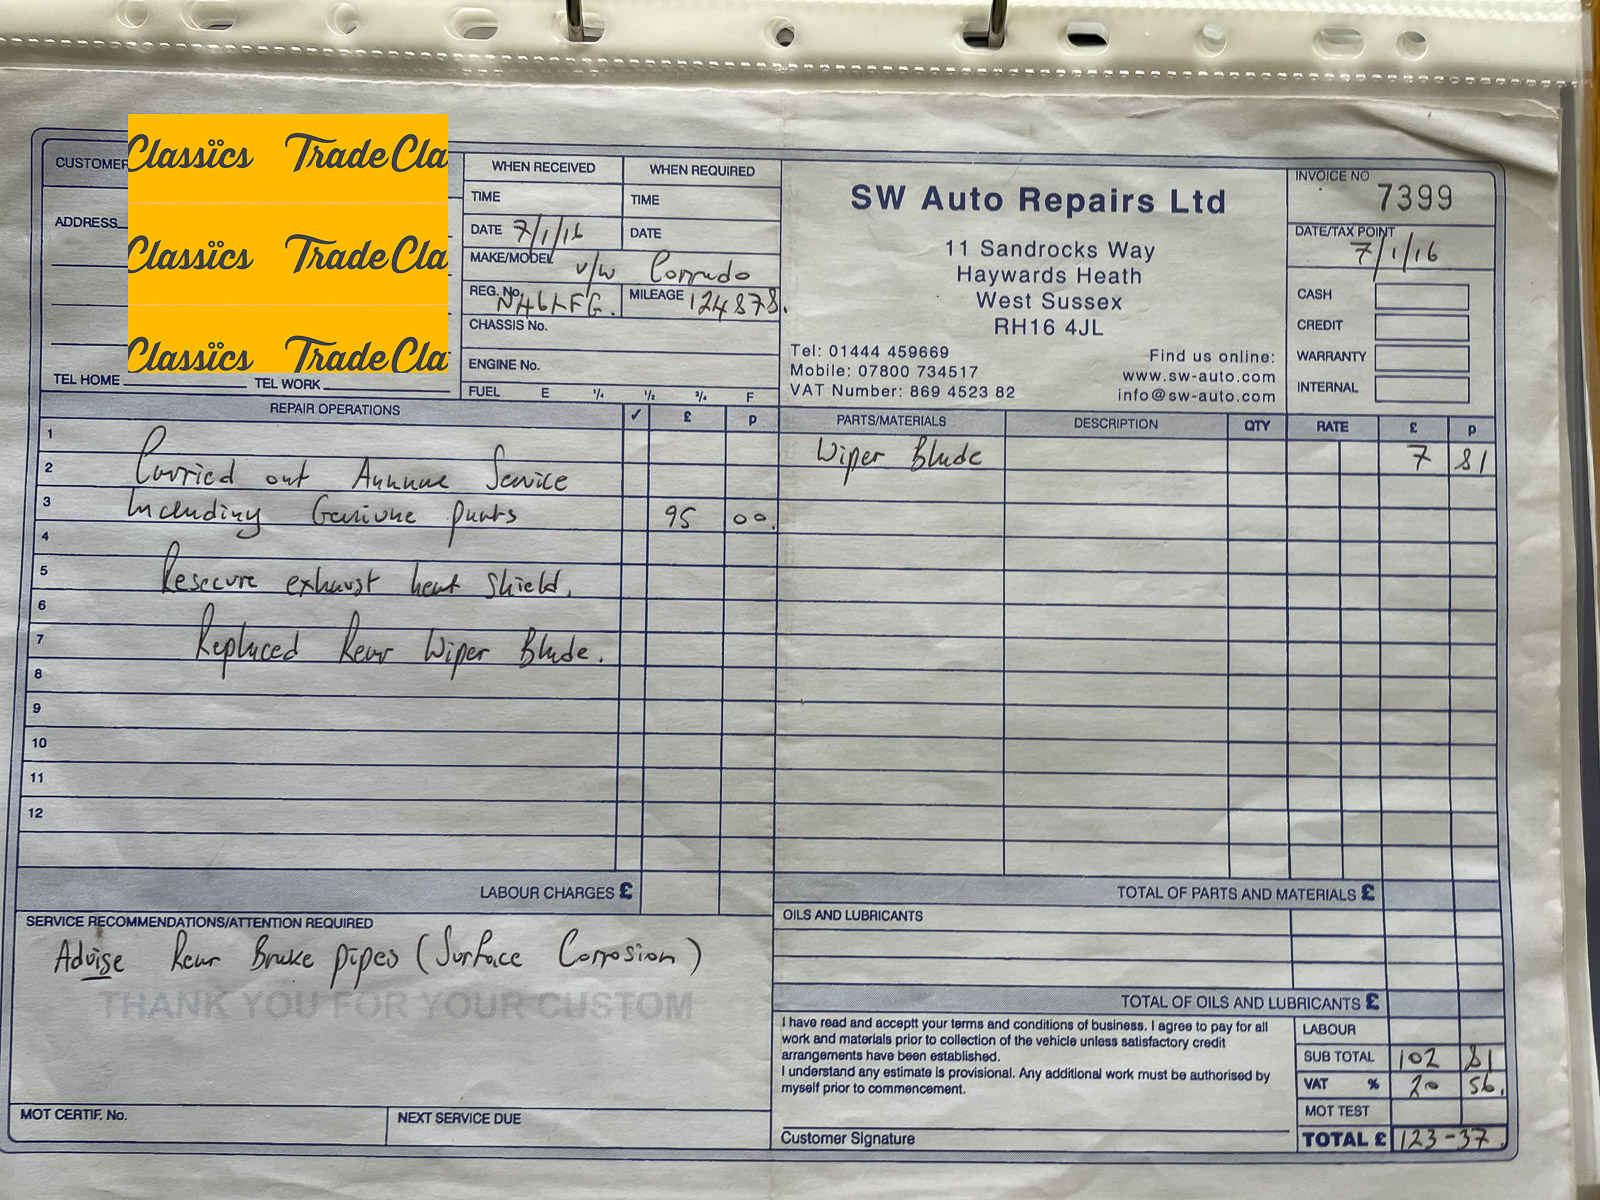 CUSTOMER
Classics Trade Cla
ADDRESS
Classics Trade Cla
Classics Trade Cla
TEL HOME TEL WORK
WHEN RECEIVED WHEN REQUIRED
TIME TIME
DATE 7/1/16 DATE
MAKE/MODEL v/w Corrado
REG. No. N461FG. MILEAGE 124878.
CHASSIS No.
ENGINE No.
FUEL E 1/4 1/2 3/4 F
SW Auto Repairs Ltd
11 Sandrocks Way
Haywards Heath
West Sussex
RH16 4JL
Tel: 01444 459669
Mobile: 07800 734517
VAT Number: 869 4523 82
Find us online:
www.sw-auto.com
info@sw-auto.com
INVOICE NO 7399
DATE/TAX POINT
7/1/16
CASH
CREDIT
WARRANTY
INTERNAL
REPAIR OPERATIONS ✓ £ p
1
2 Carried out Annual Service
3 Including Genuine parts 95 00.
4
5 Resecure exhaust heat shield.
6
7 Replaced Rear Wiper Blade.
8
9
10
11
12
LABOUR CHARGES £
PARTS/MATERIALS DESCRIPTION QTY RATE £ p
Wiper Blade 7 81
TOTAL OF PARTS AND MATERIALS £
OILS AND LUBRICANTS
TOTAL OF OILS AND LUBRICANTS £
SERVICE RECOMMENDATIONS/ATTENTION REQUIRED
Advise Rear Brake pipes (Surface Corrosion)
THANK YOU FOR YOUR CUSTOM
MOT CERTIF. No. NEXT SERVICE DUE
I have read and acceptt your terms and conditions of business. I agree to pay for all
work and materials prior to collection of the vehicle unless satisfactory credit
arrangements have been established.
I understand any estimate is provisional. Any additional work must be authorised by
myself prior to commencement.
Customer Signature
LABOUR
SUB TOTAL 102 81
VAT % 20 56.
MOT TEST
TOTAL £ 123-37.